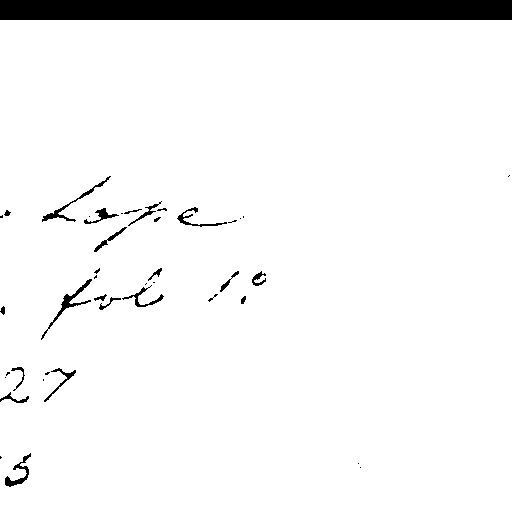 . Lope
. fol 1.º
27
5